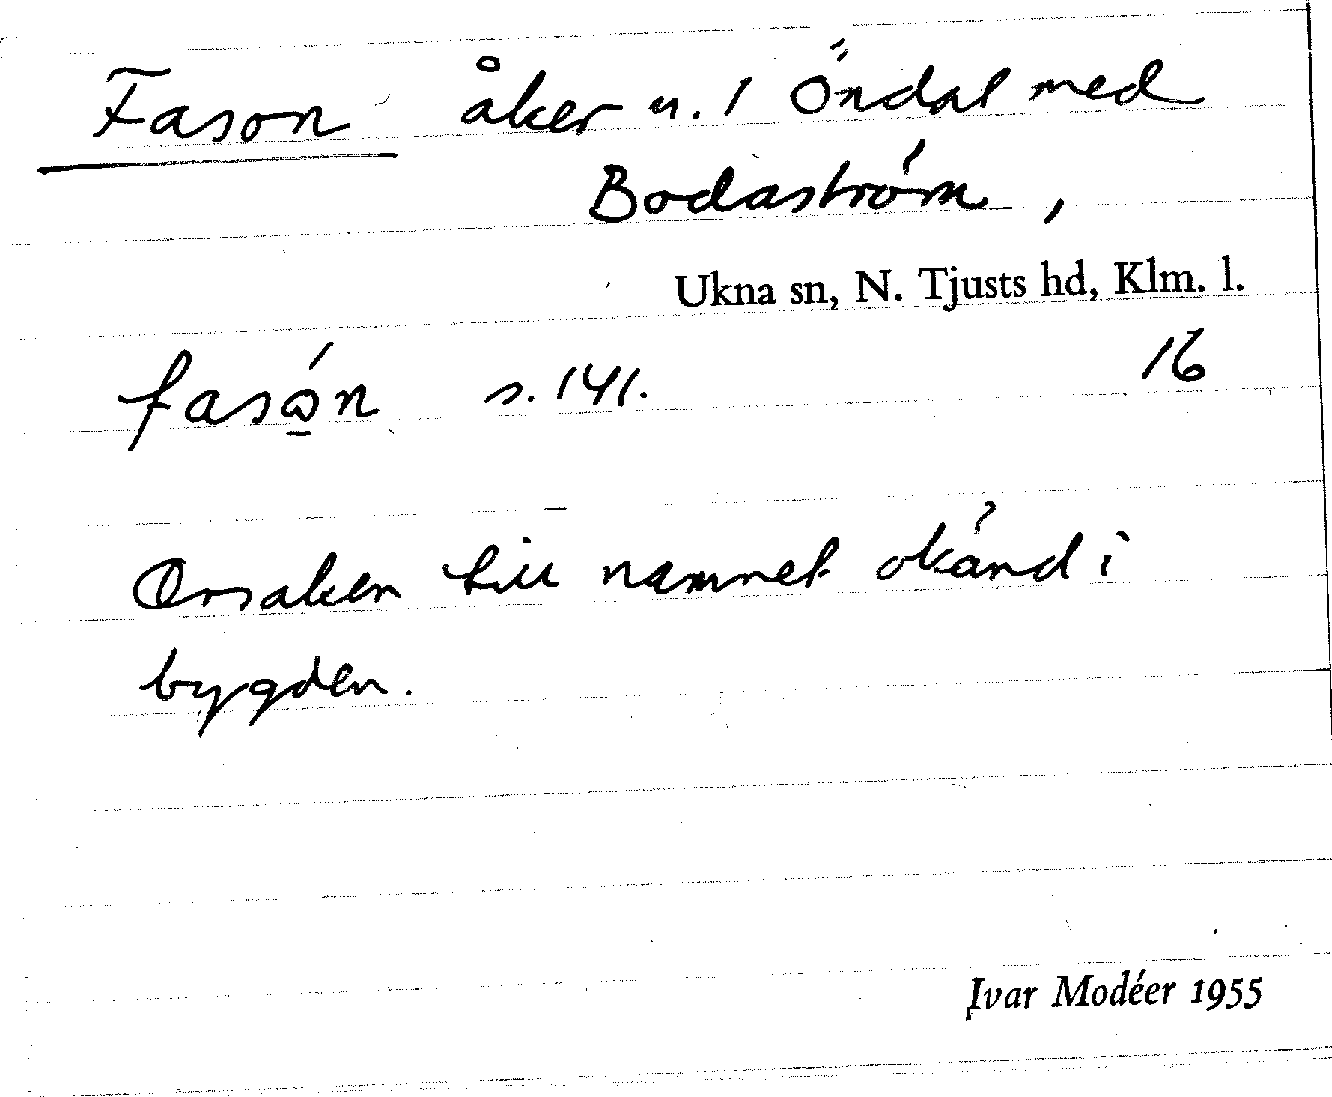 Fason åker u. 1 Öndal med
Bodaström,
Ukna sn, N. Tjusts hd, Klm. l.
fasón s. 141. 16
Orsaken till namnet okänd i
bygden.
Ivar Modéer 1955